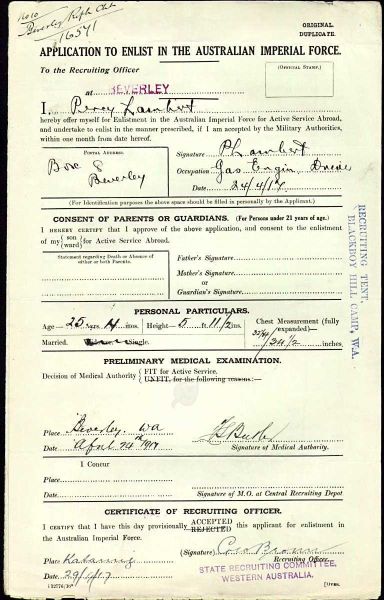 Beverley Rifle Club
16571
ORIGINAL.
DUPLICATE.
APPLICATION TO ENLIST IN THE AUSTRALIAN IMPERIAL FORCE.
To the Recruiting Officer
(Official Stamp.)
at BEVERLEY
I, Percy Lambert
hereby offer myself for Enlistment in the Australian Imperial Force for Active Service Abroad,
and undertake to enlist in the manner prescribed, if I am accepted by the Military Authorities,
within one month from date hereof.
POSTAL ADDRESS
Box 8
Beverley
Signature PLambert
Occupation Gas Engin Driver
Date 24/4/17
(For Identification purposes the above space should be filled in personally by the Applicant.)
CONSENT OF PARENTS OR GUARDIANS. (For Persons under 21 years of age.)
I HEREBY CERTIFY that I approve of the above application, and consent to the enlistment
of my (son) (ward) for Active Service Abroad.
Statement regarding Death or Absence of either or both Parents.
Father's Signature
Mother's Signature
or
Guardian's Signature
RECRUITING TENT,
BLACKBOY HILL CAMP, W.A.
PERSONAL PARTICULARS.
Age 25 yrs. 4 mos. Height 5 ft 11 1/2 ins. Chest Measurement (fully expanded) 34 1/2 inches,
Married. Single.
PRELIMINARY MEDICAL EXAMINATION.
Decision of Medical Authority FIT for Active Service.
UNFIT, for the following reasons:—
Place Beverley. WA
Date April 24th 1917
Signature of Medical Authority.
I Concur
Place
Date
Signature of M.O. at Central Recruiting Depot
CERTIFICATE OF RECRUITING OFFICER.
I CERTIFY that I have this day provisionally ACCEPTED REJECTED this applicant for enlistment in
the Australian Imperial Force.
(Signature) Geo Brown
Place Katanning
Recruiting Officer.
Date 29/4/17
STATE RECRUITING COMMITTEE,
WESTERN AUSTRALIA.
[OVER.